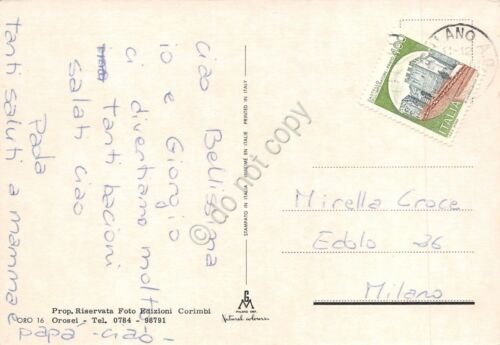 Ciao Bellissima
io e Giorgio
ci divertiamo molto
tanti bacioni
salati ciao
Paola
Tanti saluti a mamma e
papà - ciao -
Prop. Riservata Foto Edizioni Corimbi
ORO 16 Orosei - Tel. 0784 - 98791
STAMPATO IN ITALIA IMPRIMÉ EN ITALIE PRINTED IN ITALY
GM
MILANO
Natural colours
do not copy
MILANO A.D.
ITALIA
Mirella Croce
Edolo 26
Milano